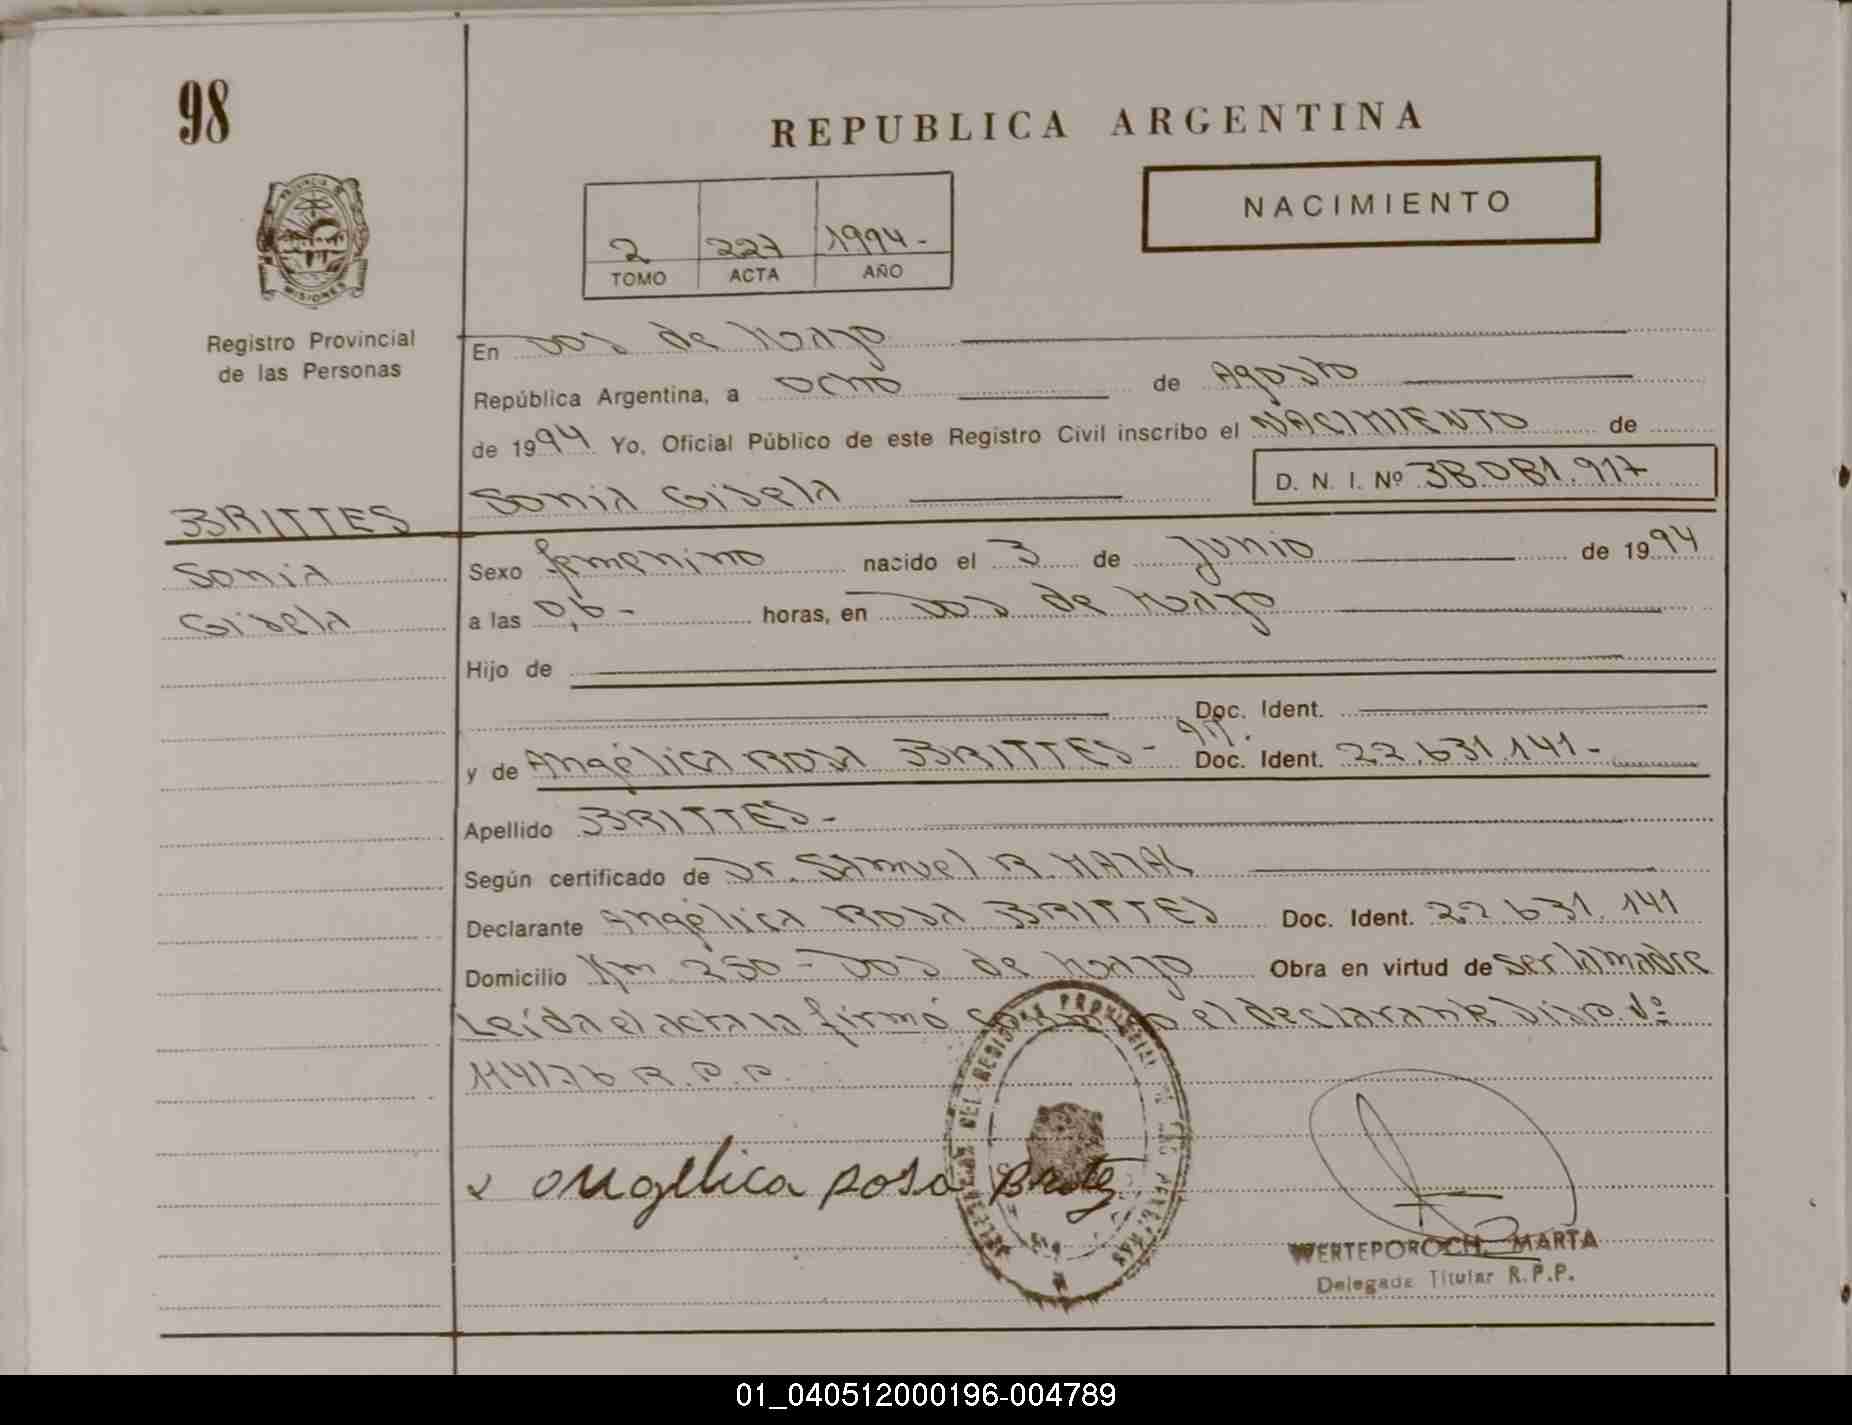 98
REPUBLICA ARGENTINA
NACIMIENTO
2 227 1994-
TOMO ACTA AÑO
PROVINCIA DE
MISIONES
Registro Provincial
de las Personas
En Dos de Mayo
República Argentina, a ocho de Agosto
de 1994 Yo, Oficial Público de este Registro Civil inscribo el NACIMIENTO de
Sonia Gisela D. N. I. Nº 38.081.917
BRITTES
Sonia
Gisela
Sexo femenino nacido el 3 de junio de 1994
a las 0,6- horas, en Dos de Mayo
Hijo de
Doc. Ident.
y de Angélica Rosa BRITTES- Doc. Ident. 22.631.141-
Apellido BRITTES-
Según certificado de Dr. Samuel R.
Declarante Angélica Rosa BRITTES Doc. Ident. 22.631.141
Domicilio Km 250 - Dos de Mayo Obra en virtud de ser la madre
Leída el acta la firmó el declarante
114/76 R.P.P.
Angelica Rosa
WERTEPOROCH, MARTA
Delegada Titular R.P.P.
01_040512000196-004789